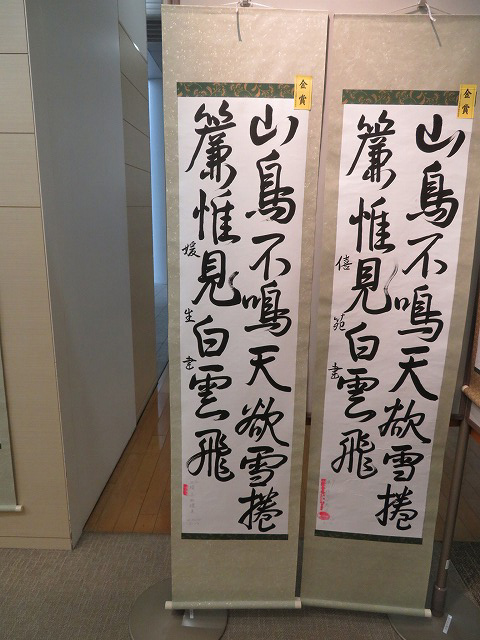 金賞
山鳥不鳴天欲雪捲
簾惟見白雲飛
媛生書
金賞
山鳥不鳴天欲雪捲
簾惟見白雲飛
僖苑書